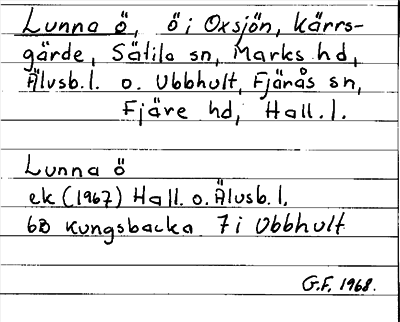 Lunna ö, ö i Oxsjön, Kärrs-
gärde, Sätila sn, Marks hd,
Älvsb.l. o. Ubbhult, Fjärås sn,
Fjäre hd, Hall.l.
Lunna ö
ek (1967) Hall. o. Älvsb.l.
6B Kungsbacka 7i Ubbhult
G.F. 1968.